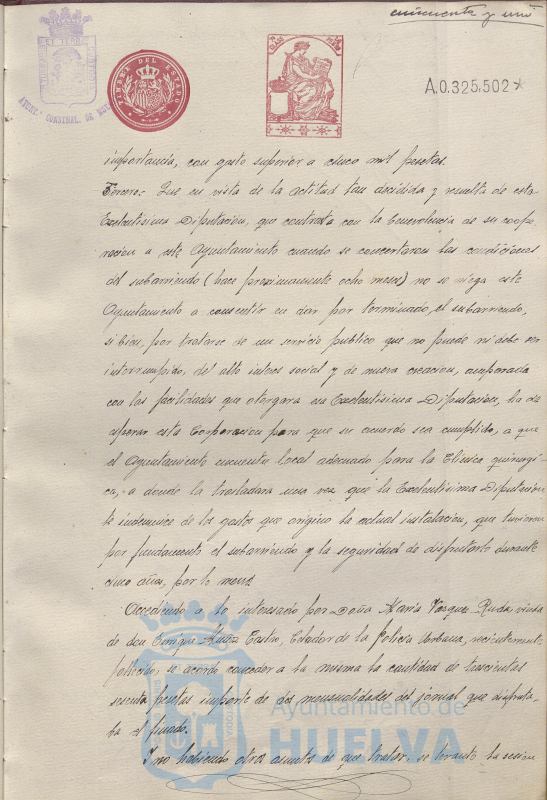 cincuenta y uno
TIMBRE DEL ESTADO
A,0.325,502
importancia, con gasto superior a cinco mil pesetas.
Tercero: Que en vista de la actitud tan decidida y resuelta de esta
Excelentísima Diputación, que contrasta con la benevolencia de su coope-
racion a este Ayuntamiento cuando se concertaron las condiciones
del subarriendo (hace proximamente ocho meses) no se niega este
Ayuntamiento a consentir en dar por terminado, el subarriendo,
si bien, por tratarse de un servicio publico que no puede ni debe ser
interrumpido, del alto interes social y de nueva creacion, amparada
con las facilidades que otorgara esa Excelentisima Diputacion, ha de
esperar esta Corporacion para que su acuerdo sea cumplido, a que
el Ayuntamiento encuentre local adecuado para la Clinica quirurgi-
ca, a donde la trasladara una vez que la Excelentisima Diputacion
le indemnice de los gastos que origino la actual instalacion, que tuvieron
por fundamento el subarriendo y la seguridad de disfrutarlo durante
cinco años, por lo menos.
Accediendo a lo interesado por Doña Maria Vazquez Ruda, viuda
de don Enrique Muñoz Castro, Celador de la Policia Urbana, recientemente
fallecido, se acordo conceder a la misma la cantidad de trescientas
sesenta pesetas importe de dos mensualidades del jornal que disfruta-
ba el finado.
Y no habiendo otros asuntos de que tratar, se levanto la sesion
Ayuntamiento de
HUELVA